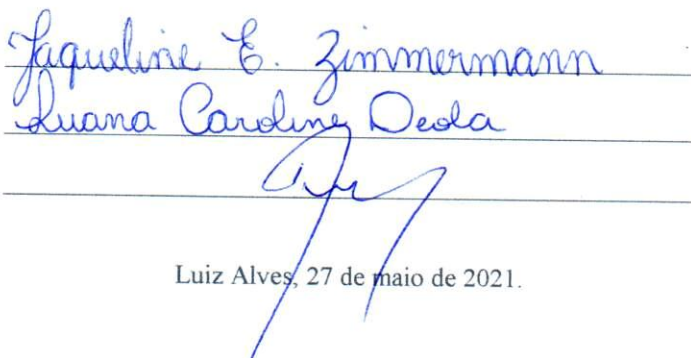 Jaqueline E. Zimmermann
Luana Caroline Deola
Luiz Alves, 27 de maio de 2021.